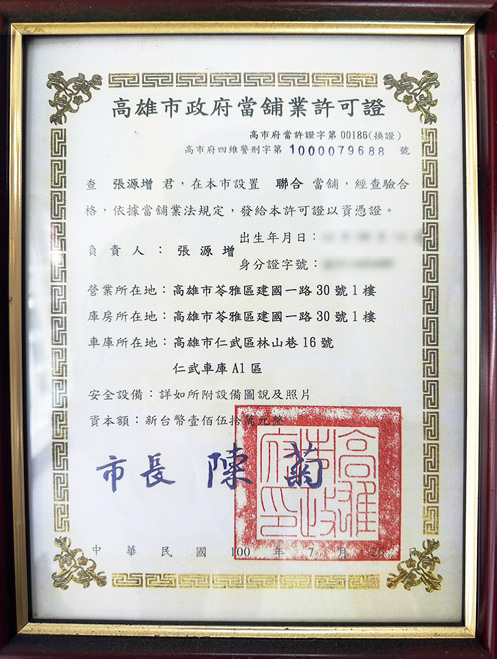 高雄市政府當舖業許可證
高市府當許證字第00186(換證)
高市府四維警刑字第 1000079688 號
查 張源增 君，在本市設置 聯合 當舖，經查驗合
格，依據當舖業法規定，發給本許可證以資憑證。
負責人：張源增
出生年月日：
身分證字號：
營業所在地：高雄市苓雅區建國一路30號1樓
庫房所在地：高雄市苓雅區建國一路30號1樓
車庫所在地：高雄市仁武區林山巷16號
仁武車庫A1區
安全設備：詳如所附設備圖說及照片
資本額：新台幣壹佰伍拾萬元整
市長 陳菊
高雄市政府印
中華民國 100 年 7 月 日